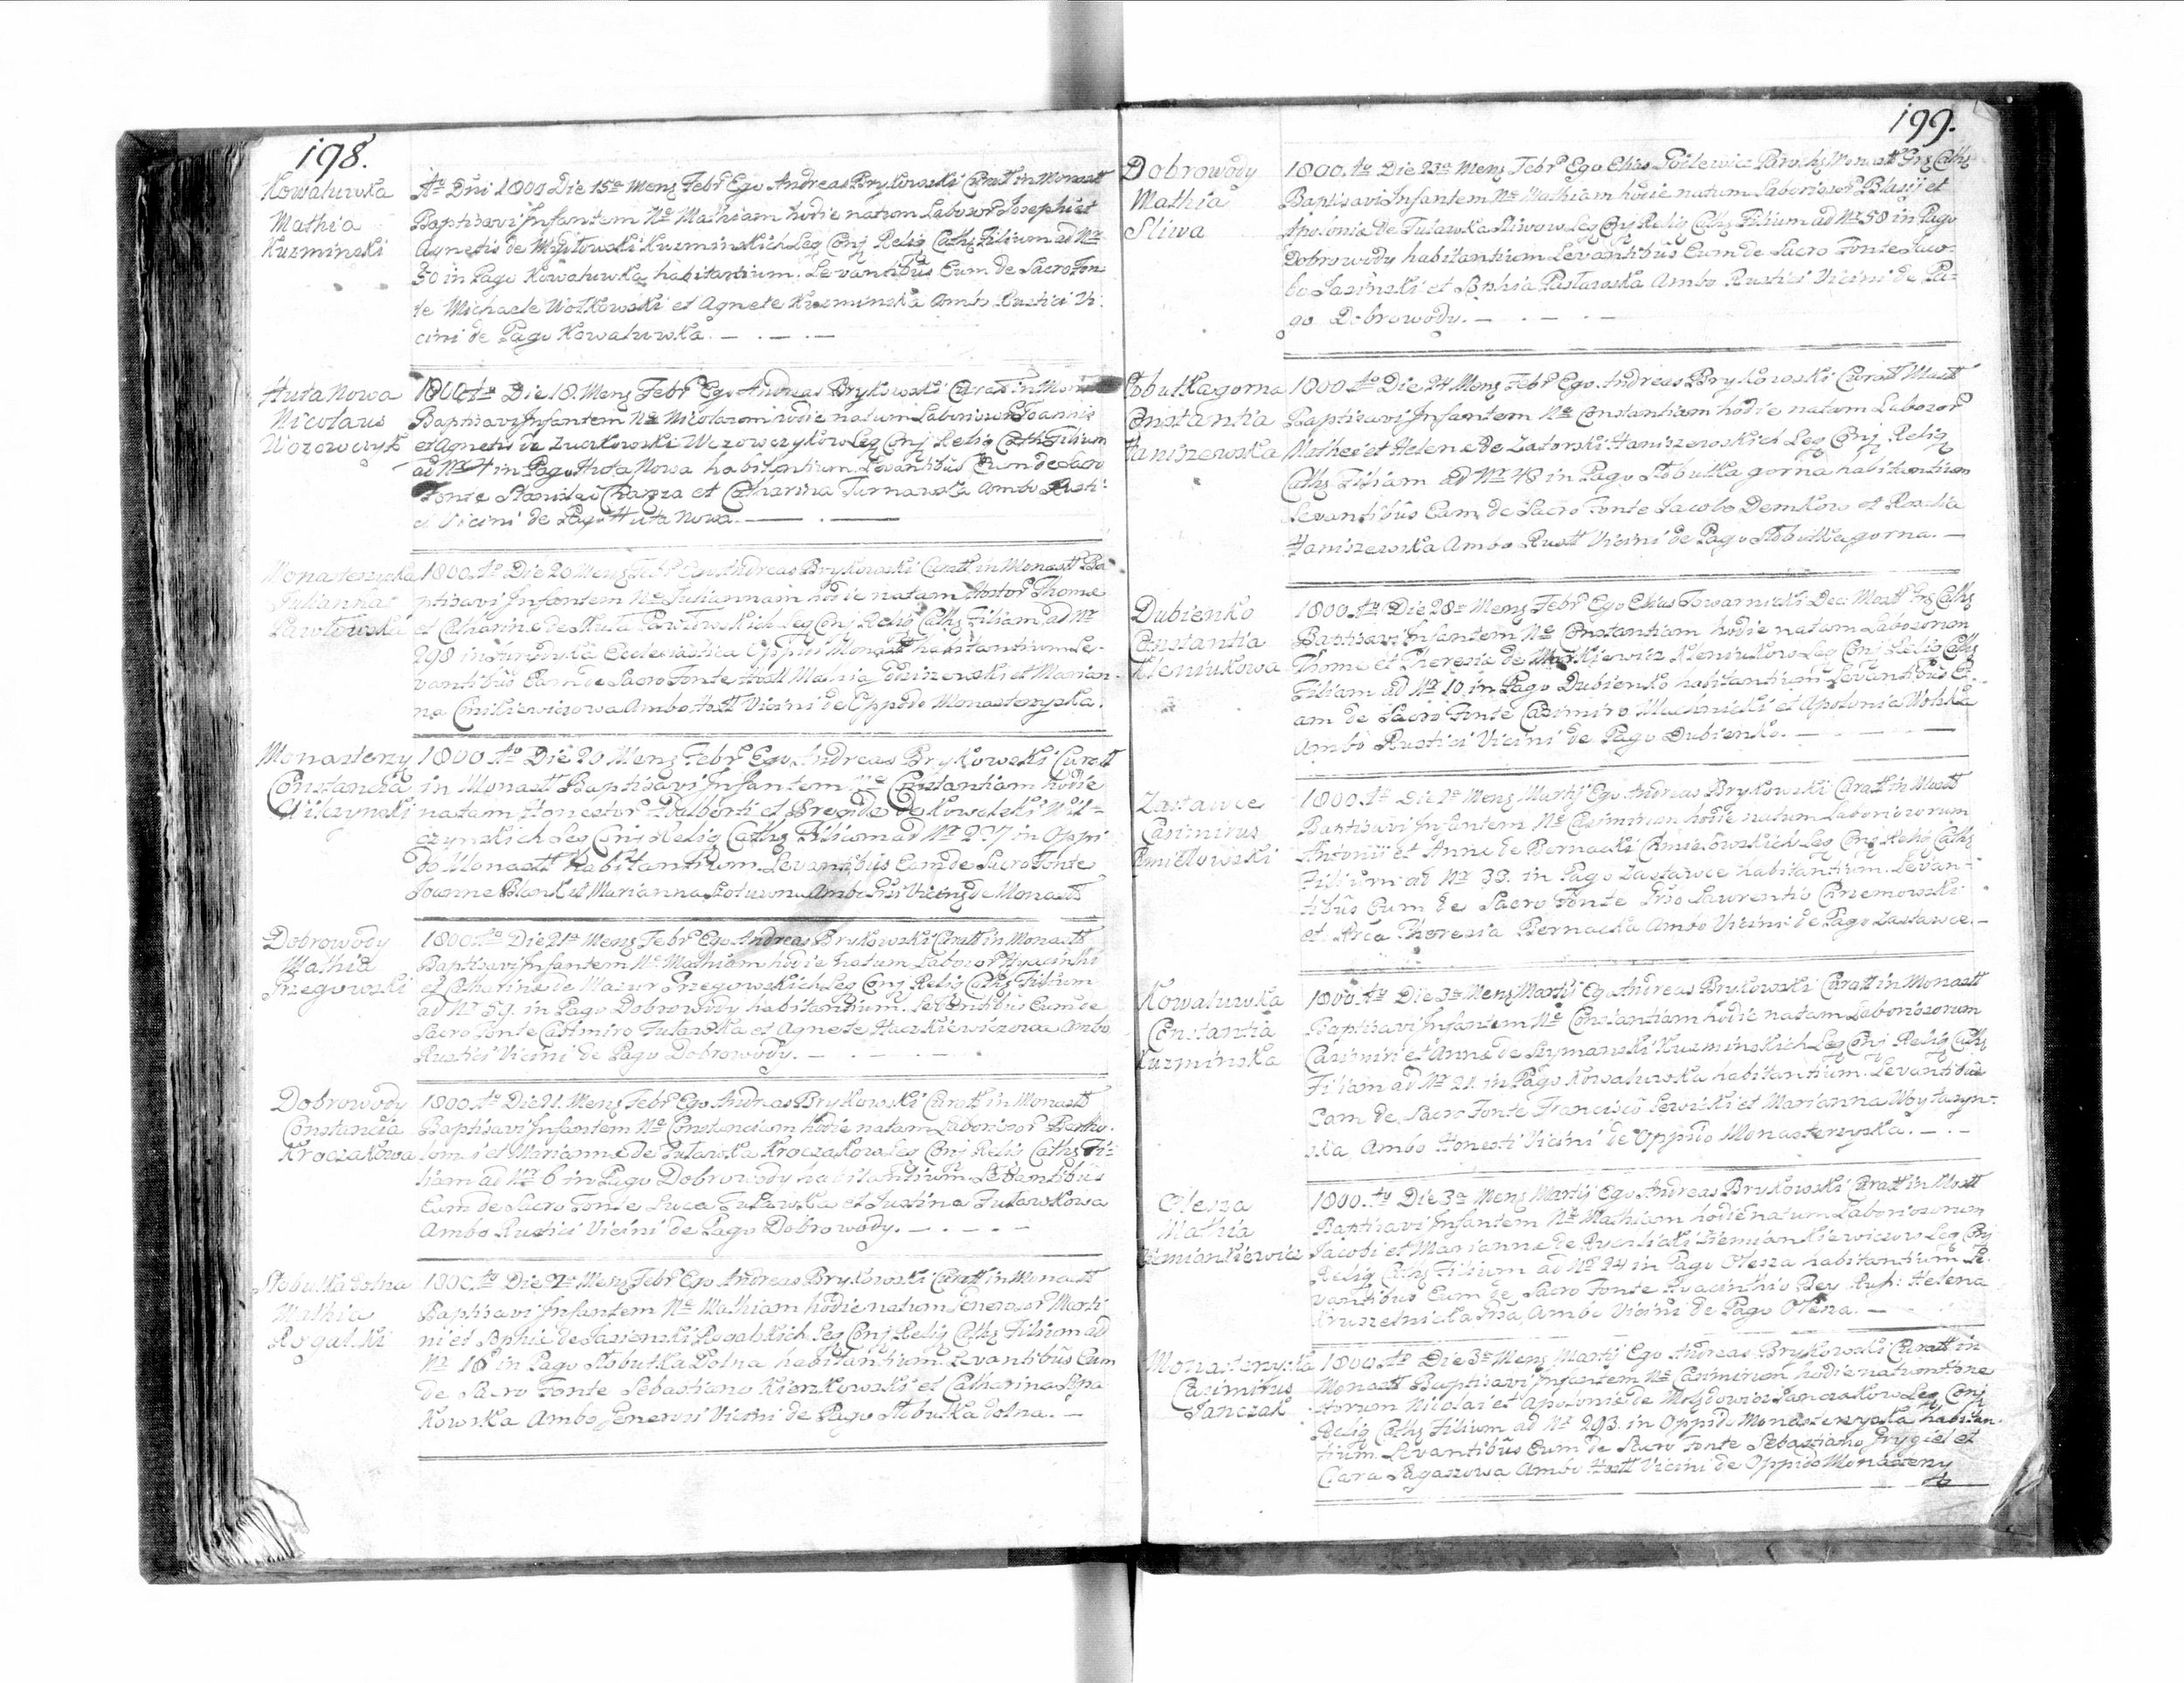 198.
Kowaluwka
Mathia
Kuzminski
Ao Dni 1800 Die 15a Mens Febr Ego Andreas Brykowski Curatt in Monastt
Baptisavi Infantem Ne Mathiam hodie natum Laborior Josephi et
Agnetis de Kuzminskich Leg Conj Relig Cath Filium ad Nr
30 in Pago Kowaluwka habitantium. Levantibus Eum de Sacro Fon
te Michaele Wolkowski et Agnete Kuzminska Ambo Rustici Vi
cini de Pago Kowaluwka.
Huta Nowa
Nicolaus
Wozowczyk
1800 Ao Die 18. Mens Febr Ego Andreas Brykowski Curatt in Mon
Baptisavi Infantem Ne Nicolaum hodie natum Laborior Joannis
et Agnetis de Leg Conj Relig Cath Filium
ad Nr 4 in Pago Huta Nowa habitantium. Levantibus Eum de Sacro
Fonte Stanislao et Catharina Turnawska Ambo Rusti
ci Vicini de Pago Huta Nowa.
Monasterzyska
Julianna
Pawlowska
1800 Ao Die 20 Mens Febr Ego Andreas Brykowski Curatt in Monastt Ba
ptisavi Infantem Ne Juliannam hodie natam Honestor Thomæ
et Catharinæ de Huta Pawlowskich Leg Conj Relig Cath Filiam ad Nr
298 in Ecclesiastica Oppidi Monastt habitantium Le-
vantibus Eam de Sacro Fonte Hostt Mathia et Marian
na Ambo Hostt Vicini de Oppido Monasterzyska.
Monasterzy
Constancia
Wilczynski
1800 Ao Die 20 Mens Febr Ego Andreas Brykowski Curatt
in Monastt Baptisavi Infantem Ne Constantiam hodie
natam Honestor Adalberti et Bregidæ de Kowalski Wil-
czynskich Leg Conj Relig Cath Filiam ad Nr 227 in Oppi
do Monastt habitantium. Levantibus Eam de Sacro Fonte
Joanne et Marianna Ambo Vicini de Monastt
Dobrowody
Mathia
Przegowski
1800 Ao Die 21a Mens Febr Ego Andreas Brykowski Curatt in Monastt
Baptisavi Infantem Ne Mathiam hodie natum Laborior Hyacinthi
et Catharinæ de Mazur Przegowskich Leg Conj Relig Cath Filium
ad Nr 59. in Pago Dobrowody habitantium. Levantibus Eum de
Sacro Fonte Casimiro Tutawska et Agnete Ambo
Rustici Vicini de Pago Dobrowody.
Dobrowody
Constancia
Kroczakowa
1800 Ao Die 21. Mens Febr Ego Andreas Brykowski Curatt in Monastt
Baptisavi Infantem Ne Constanciam hodie natam Laborior Bartho-
lomei et Mariannæ de Tutawska Kroczakow Leg Conj Relig Cath Fi-
liam ad Nr 6 in Pago Dobrowody habitantium. Levantibus
Eam de Sacro Fonte Luca Tutawska et Justina Tutawkowa
Ambo Rustici Vicini de Pago Dobrowody.
Slobutka dolna
Mathia
Rogalski
1800 Ao Die Mens Febr Ego Andreas Brykowski Curatt in Monastt
Baptisavi Infantem Ne Mathiam hodie natum Generosor Marti
ni et Sophiæ de Jasienski Rogalskich Leg Conj Relig Cath Filium ad
Nr 18 in Pago Slobutka Dolna habitantium. Levantibus Eum
de Sacro Fonte Sebastiano Kierzkowski et Catharina
kowska Ambo Generosi Vicini de Pago Slobutka dolna.
199.
Dobrowody
Mathia
Sliwa
1800. Ao Die 23a Mens Febr Ego Elias Parochs Monastt Cath
Baptisavi Infantem Ne Mathiam hodie natum Laborior Blasij et
Apoloniæ de Tutawska Sliwow Leg Conj Relig Cath Filium ad Nr 58 in Pago
Dobrowody habitantium Levantibus Eum de Sacro Fonte Jaco-
bo Jasinski et Sophia Ambo Rustici Vicini de Pa-
go Dobrowody.
Slobutka gorna
Constantia
Haniszewska
1800 Ao Die 24 Mens Febr Ego Andreas Brykowski Curatt Mastt
Baptisavi Infantem Ne Constantiam hodie natam Laborior
Mathei et Helenæ de Zatorski Haniszewskich Leg Conj Relig
Cath Filiam ad Nr 48 in Pago Slobutka gorna habitantium
Levantibus Eam de Sacro Fonte Jacobo Demkow et Rosalia
Haniszewska Ambo Rustt Vicini de Pago Slobutka gorna.
Dubienko
Constantia
Kleniukowa
1800 Ao Die 28a Mens Febr Ego Elias Towarnicki Mostt Cath
Baptisavi Infantem Ne Constantiam hodie natam Laboriorum
Thomæ et Theresiæ de Markiewicz Kleniukow Leg Conj Relig Cath
Filiam ad Nr 10 in Pago Dubienko habitantium Levantibus E-
am de Sacro Fonte Casimiro Machnicki et Apolonia
Ambo Rustici Vicini de Pago Dubienko.
Zastawce
Casimirus
Chmielowski
1800 Ao Die 1a Mens Martij Ego Andreas Brykowski Curatt in Mostt
Baptisavi Infantem Ne Casimirum hodie natum Laboriosorum
Antonii et Annæ de Bernacki Chmielowskich Leg Conj Relig Cath
Filium ad Nr 33. in Pago Zastawce habitantium. Levan-
tibus Eum de Sacro Fonte Laurentio
et Theresia Bernacka Ambo Vicini de Pago Zastawce.
Kowaluwka
Constantia
Kuzminska
1800 Ao Die 3a Mens Martij Ego Andreas Brykowski Curatt in Monastt
Baptisavi Infantem Ne Constantiam hodie natam Laboriosorum
Casimiri et Annæ de Szymanski Kuzminskich Leg Conj Relig Cath
Filiam ad Nr 21. in Pago Kowaluwka habitantium. Levantibus
Eam de Sacro Fonte Francisco Lewicki et Marianna Woytuzyn-
ska Ambo Honesti Vicini de Oppido Monasterzyska.
Olesza
Mathia
Demiankiewicz
1800. Ao Die 3a Mens Martij Ego Andreas Brykowski Curatt in Mostt
Baptisavi Infantem Ne Mathiam hodie natum Laboriosorum
Jacobi et Mariannæ de Demiankiewiczow Leg Conj
Relig Cath Filium ad Nr 24 in Pago Olesza habitantium Le-
vantibus Eum de Sacro Fonte Hyacintho Bey Helena
Kruszelnicka Ambo Vicini de Pago Olesza.
Monasterzyska
Casimirus
Janczak
1800 Ao Die 3a Mens Martij Ego Andreas Brykowski Curatt in
Monastt Baptisavi Infantem Ne Casimirum hodie natum Hone
storum Nicolai et Apoloniæ de Janczakow Leg Conj
Relig Cath Filium ad Nr 293. in Oppido Monasterzyska habitan-
tium. Levantibus Eum de Sacro Fonte Sebastiano Grygiel et
Clara Ambo Hostt Vicini de Oppido Monasterzy